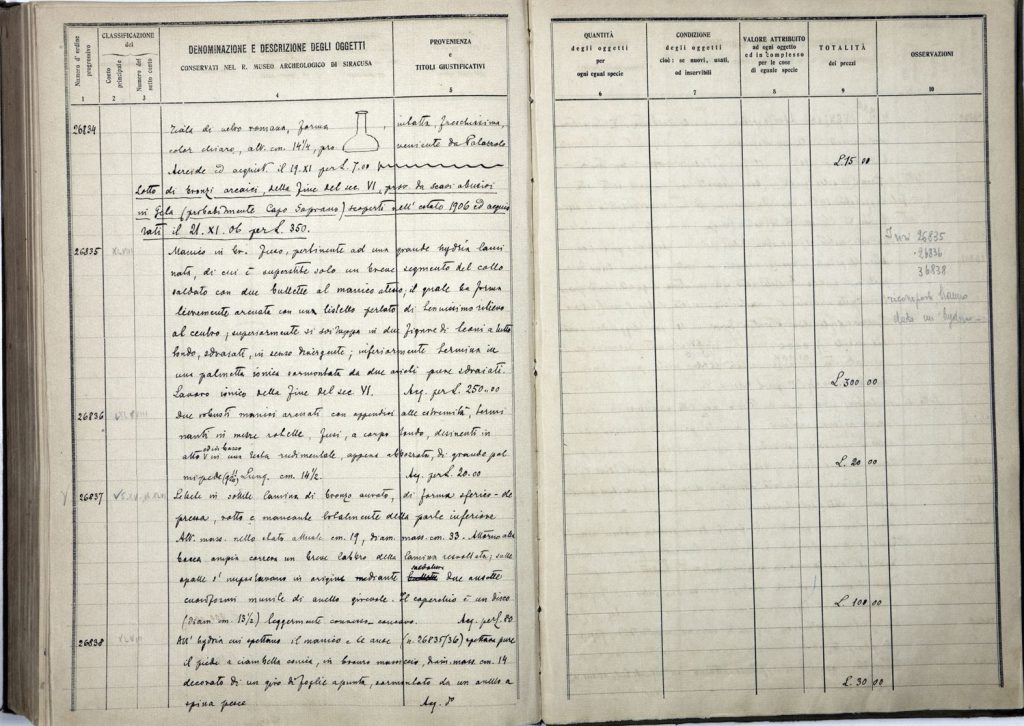 Numero d'ordine progressivo
CLASSIFICAZIONE
del
Conto principale
Numero del sotto conto
DENOMINAZIONE E DESCRIZIONE DEGLI OGGETTI
CONSERVATI NEL R. MUSEO ARCHEOLOGICO DI SIRACUSA
PROVENIENZA
e
TITOLI GIUSTIFICATIVI
1 2 3 4 5
26834 Fiala di vetro romana, forma , intatta, freschissima,
color chiaro, alt. cm. 14 1/4, proveniente da Palazzolo
Acreide ed acquist. il 19.XI per L. 7.00
Lotto di bronzi arcaici, della fine del sec. VI, prov. da scavi abusivi
in Gela (probabilmente Capo Soprano) scoperti nell'estate 1906 ed acqui
stati il 21.XI.06 per L. 350.
26835 XLVIII Manico in br. fuso, pertinente ad una grande hydria lami
nata, di cui è superstite solo un breve segmento del collo
saldato con due bullette al manico stesso; il quale ha forma
lievemente arcuata con una listello perlato di benissimo rilievo
al centro; superiormente si sviluppa in due figure di leoni a tutto
tondo, sdraiati, in senso divergente; inferiormente termina in
una palmetta ionica sormontata da due pure sdraiati.
Lavoro ionico della fine del sec. VI. Acq. per L. 250.00
26836 Due robusti manici arcuati con appendici alle estremità, termi
nanti in mezze rotelle, fusi, a corpo tondo, desinenti in
alto ed in basso in una testa rudimentale, appena abbozzata, di grande pal
mipede Lung. cm. 14 1/2. Acq. per L. 20.00
26837 Lebete in sottile lamina di bronzo aurato, di forma sferico-de
pressa, rotto e mancante totalmente della parte inferiore
Alt. mass. nello stato attuale cm. 19, diam. mass. cm. 33. Attorno alla
bocca ampia correva un breve labbro della lamina resvoltata; sulle
spalle s' in origine mediante saldatura due ansette
cuoriformi munite di anello girevole. Il coperchio è un disco
(diam. cm. 13 1/2) leggermente convesso-concavo. Acq. per L. 80
26838 XLVIII All'hydria cui spettano il manico e le anse (n. 26835/36) spettava pure
il piede a ciambella conica, in bronzo massiccio, diam. mass. cm. 14
decorato di un giro di foglie a punta, sormontato da un anello a
spina pesce Acq. p
QUANTITÀ
degli oggetti
per
ogni egual specie
CONDIZIONE
degli oggetti
cioè: se nuovi, usati,
od inservibili
VALORE ATTRIBUITO
ad ogni oggetto
ed in complesso
per le cose
di eguale specie
TOTALITÀ
dei prezzi
OSSERVAZIONI
6 7 8 9 10
L. 15 00
I nri 26835
26836
26838
ricomposti hanno
dato un'hydria
L. 300 00
L. 20 00
L. 100 00
L. 30 00